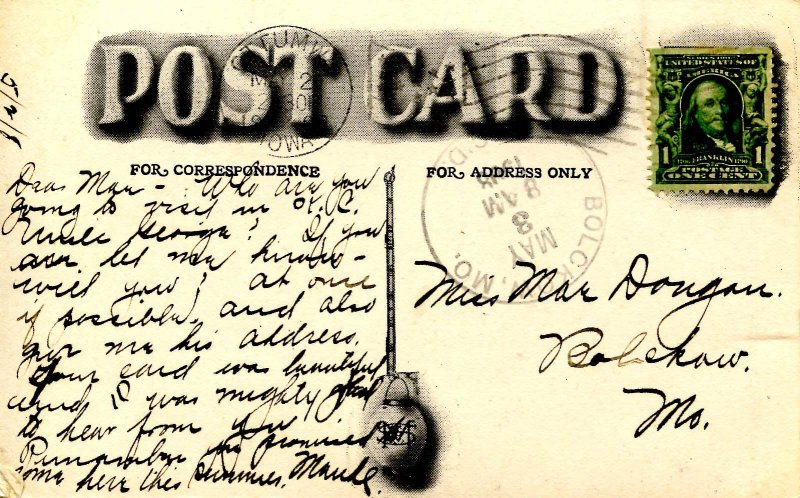 POST CARD
OTTUMWA
MAY 2
IOWA
5/2/
FOR CORRESPONDENCE
FOR ADDRESS ONLY
UNITED STATES OF AMERICA
1 FRANKLIN 1
POSTAGE
ONE CENT
BOLCKOW, MO.
MAY
3
8 AM
Dear Mae - Who are you
going to visit in K.C.
Uncle George? If you
are let me know -
will you? at once
if possible, and also
give me his address.
Your card was beautiful
and I was mighty glad
to hear from you
Remember you promised
come here this summer. Maude.
Miss Mae Dougan.
Bolckow.
Mo.